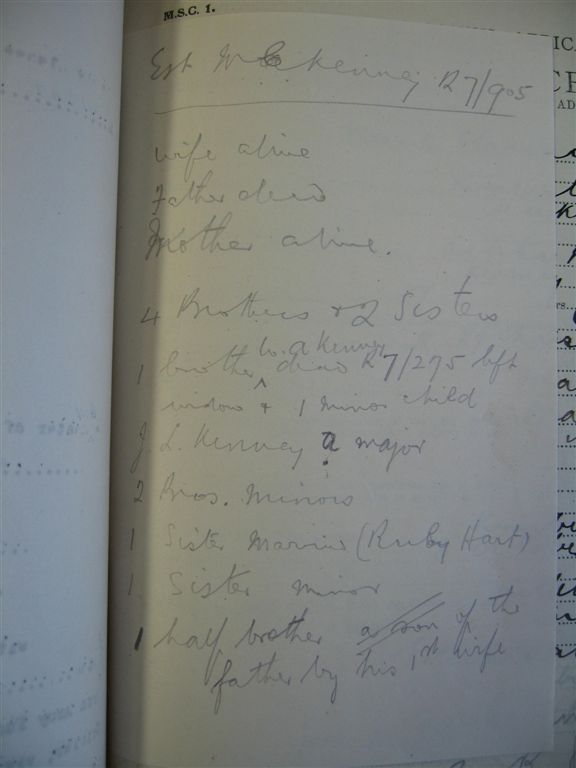 M.S.C. 1.
Est Kenney R7/905
wife alive
Father dead
Mother alive.
4 Brothers & 2 Sisters
W. A Kenney
1 brother ^ dead R7/275 left
widow & 1 minor child
J. L. Kenney a major
2 Bros. Minors
1 Sister Married (Ruby Hart)
1 Sister minor
1 half brother a son of the
father by his 1st wife